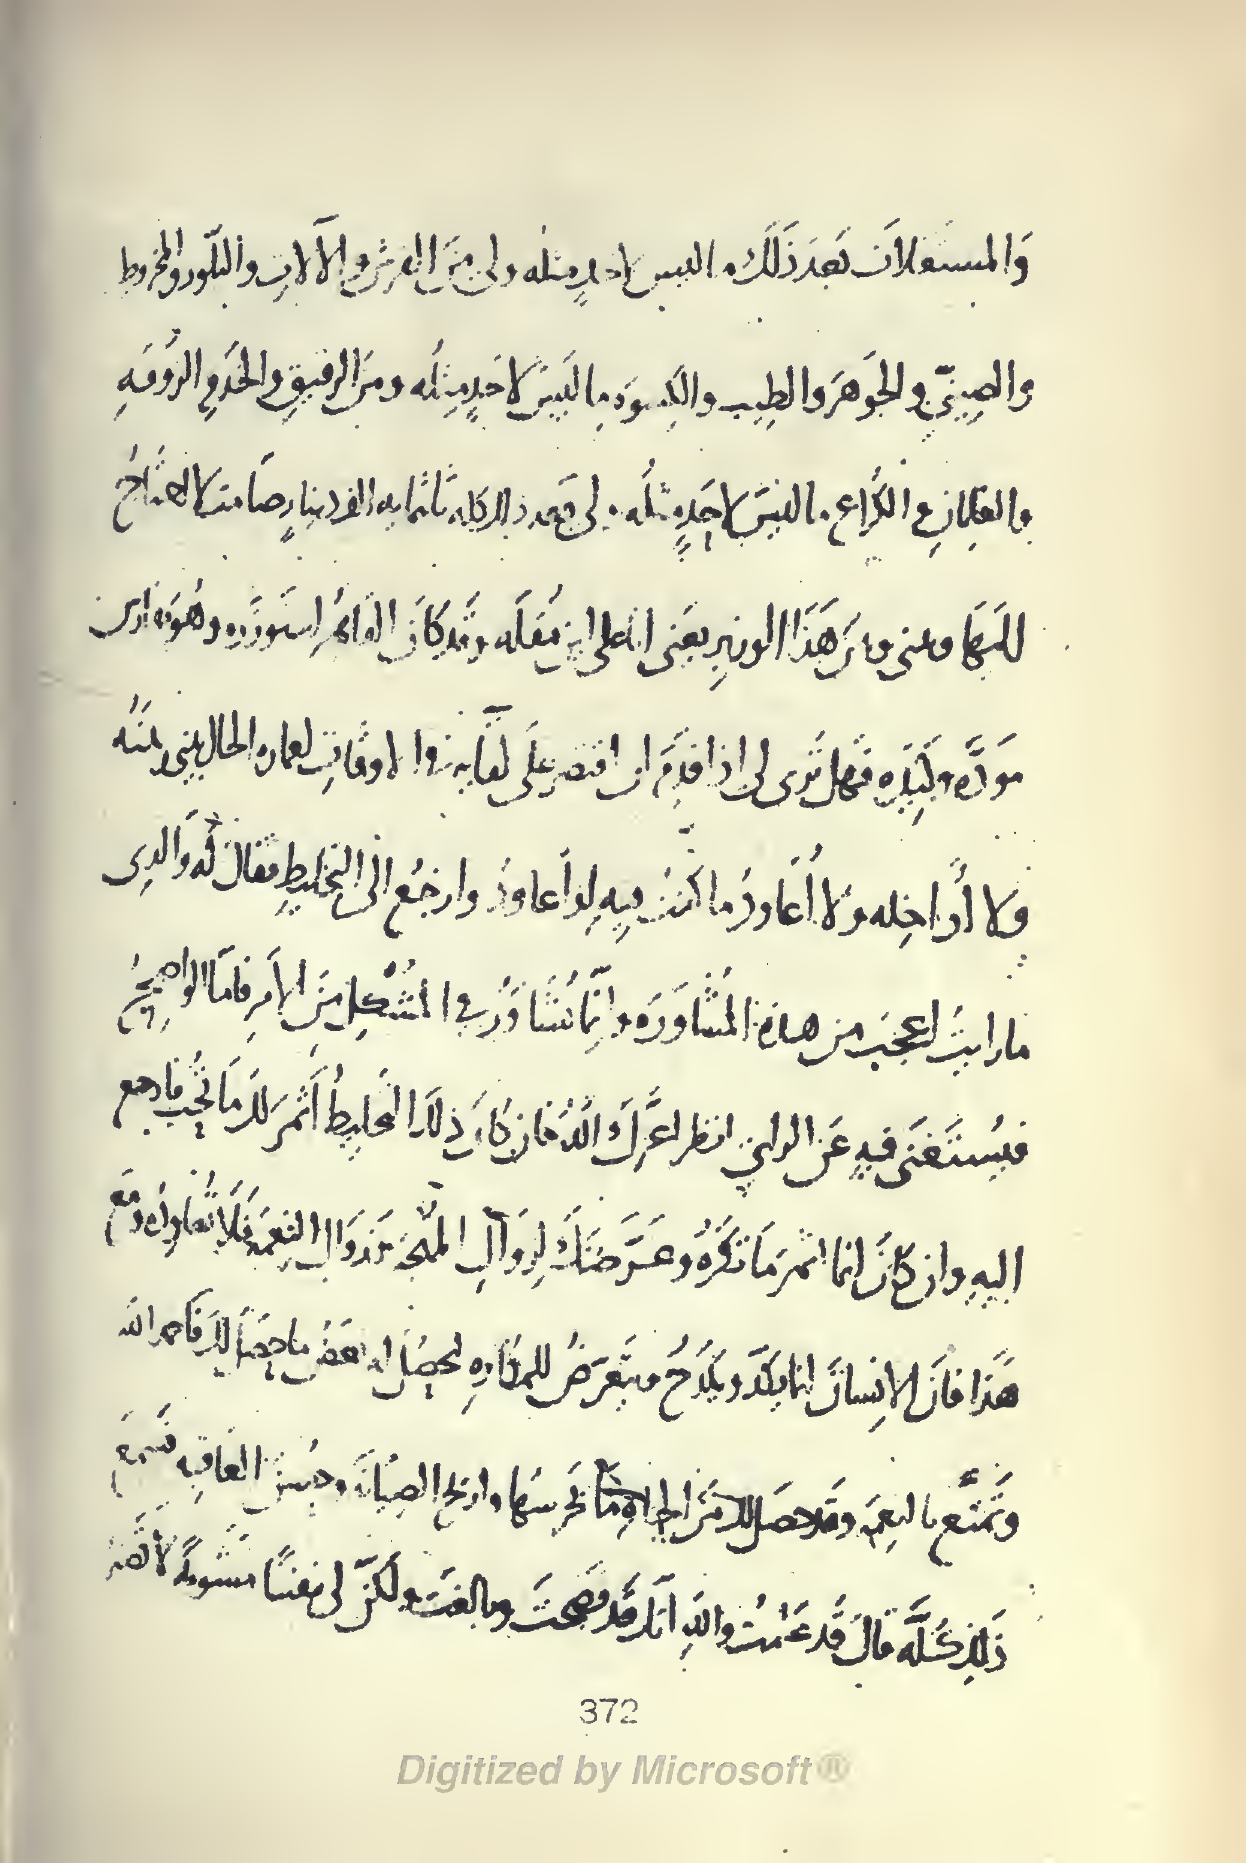 وَالمستغلات بَعدَ ذَلَكَ ما ليس لاحدٍ مثله ولى مِنَ الفرش والآلات والبلّور والمخروط
والصِينىّ والجَوهَر والطِيب والكِسوَه ما لَيسَ لاحَدٍ مِثلُه ومنَ الرقيقِ والخدَمِ الرُوقَهِ
والغلمانِ والكُراعِ ما ليسَ لاحَدٍ مثلُه ولى بعد ذلك كله ثلثمايه الف دينارٍ صامت لا احتاجُ
اليها وعنى وبَينَ هَذَا الوزيرِ يعَنى ابا على ابن مُقلَه وقد كانَ القاهِرُ استَوزَرَه وهُوَ بفارس
مَوَدَّه وكَيدَه فهَل تَرى لى اذا قَدِمَ ان اقتصِر علَى لقآيهِ فى الاوقاتِ لعماره الحال بينى وبَينَه
ولا أداخِله ولا أعَاودُ ما كنتُ فيهِ او أعاوِدُ وارجُع الى التخليطِ فقالَ لَه وَالدى
ما رايتُ اعجَبَ من هذهِ المُشاوَرَه وانِّمَا يُشَاوَرُ فى المُشْكِلِ مِنَ الامرِ فامّا الواضِحُ
فيُستَغنَى فيهِ عَن الراىِ انظر اعَزّكَ اللهُ فان كانَ ذلكَ التخَليطُ أثمرَ لكَ مَا تُحِب فارجع
اليهِ وان كانَ انما اثمرَ مَا تكرَهُ وعَرَّضَكَ لِزوَالِ المُهجَهِ وَزَوَال النِعمَه فَلا تُعاوِدْه ومَع
هَذا فانَ الانِسانَ انما يَكدّ ويَكدَحُ ويَتَعَرّضُ للمكارهِ ليحصُلَ له بعَضُ ما حصَلَ لكَ فاحمد الله
وتَمتَّع بالنِعمَه وقد حصَل لك مَن الجاهِ مَا يَحرسُها واربح الصِيانَه وحُسنَ العَاقِبه فسَمِعَ
ذَلكَ كُلَّه قالَ قَد عَلمتُ واللهِ انّكَ قَد نصَحتَ وبالغتَ ولَكنّ لى نفسًا مَشومهً لا تصبر
372
Digitized by Microsoft®